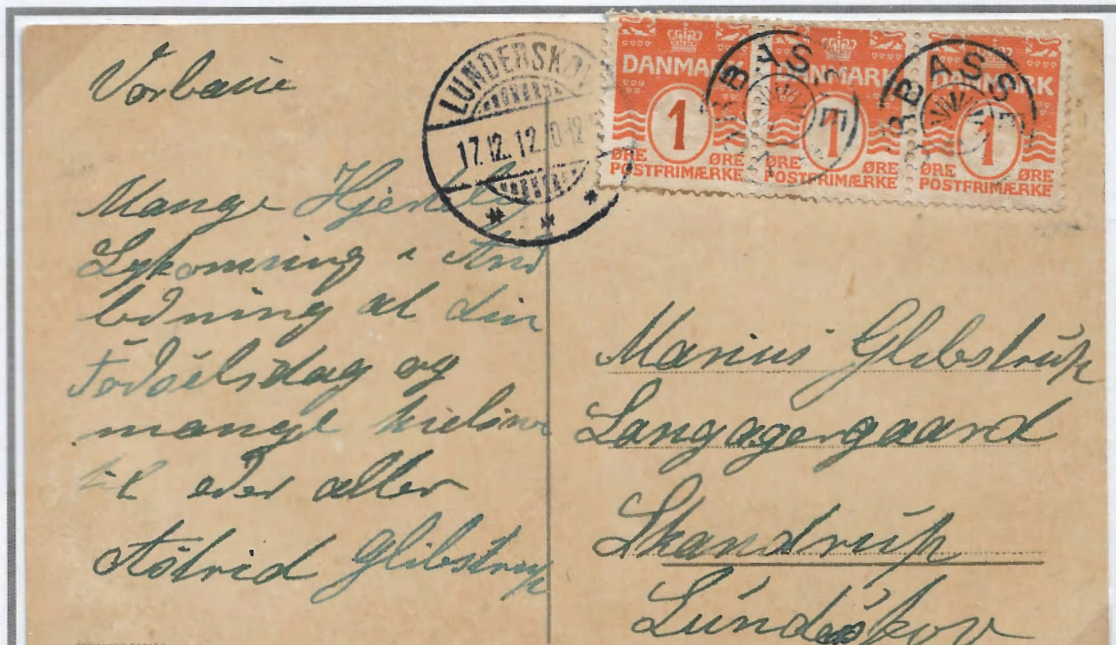 Vorbasse
Mange Hjertelig
Lykonsning i An
ledning af din
Födselsdag og
mange
til eder aller
Astrid Glibstrup
LUNDERSKOV
17.12.12
DANMARK
1
ØRE ØRE
POSTFRIMÆRKE
DANMARK
1
ØRE ØRE
POSTFRIMÆRKE
DANMARK
1
ØRE ØRE
POSTFRIMÆRKE
RBASSE
RBASSE
Marius Glibstrup
Langagergaard
Skandrup
Lunderskov